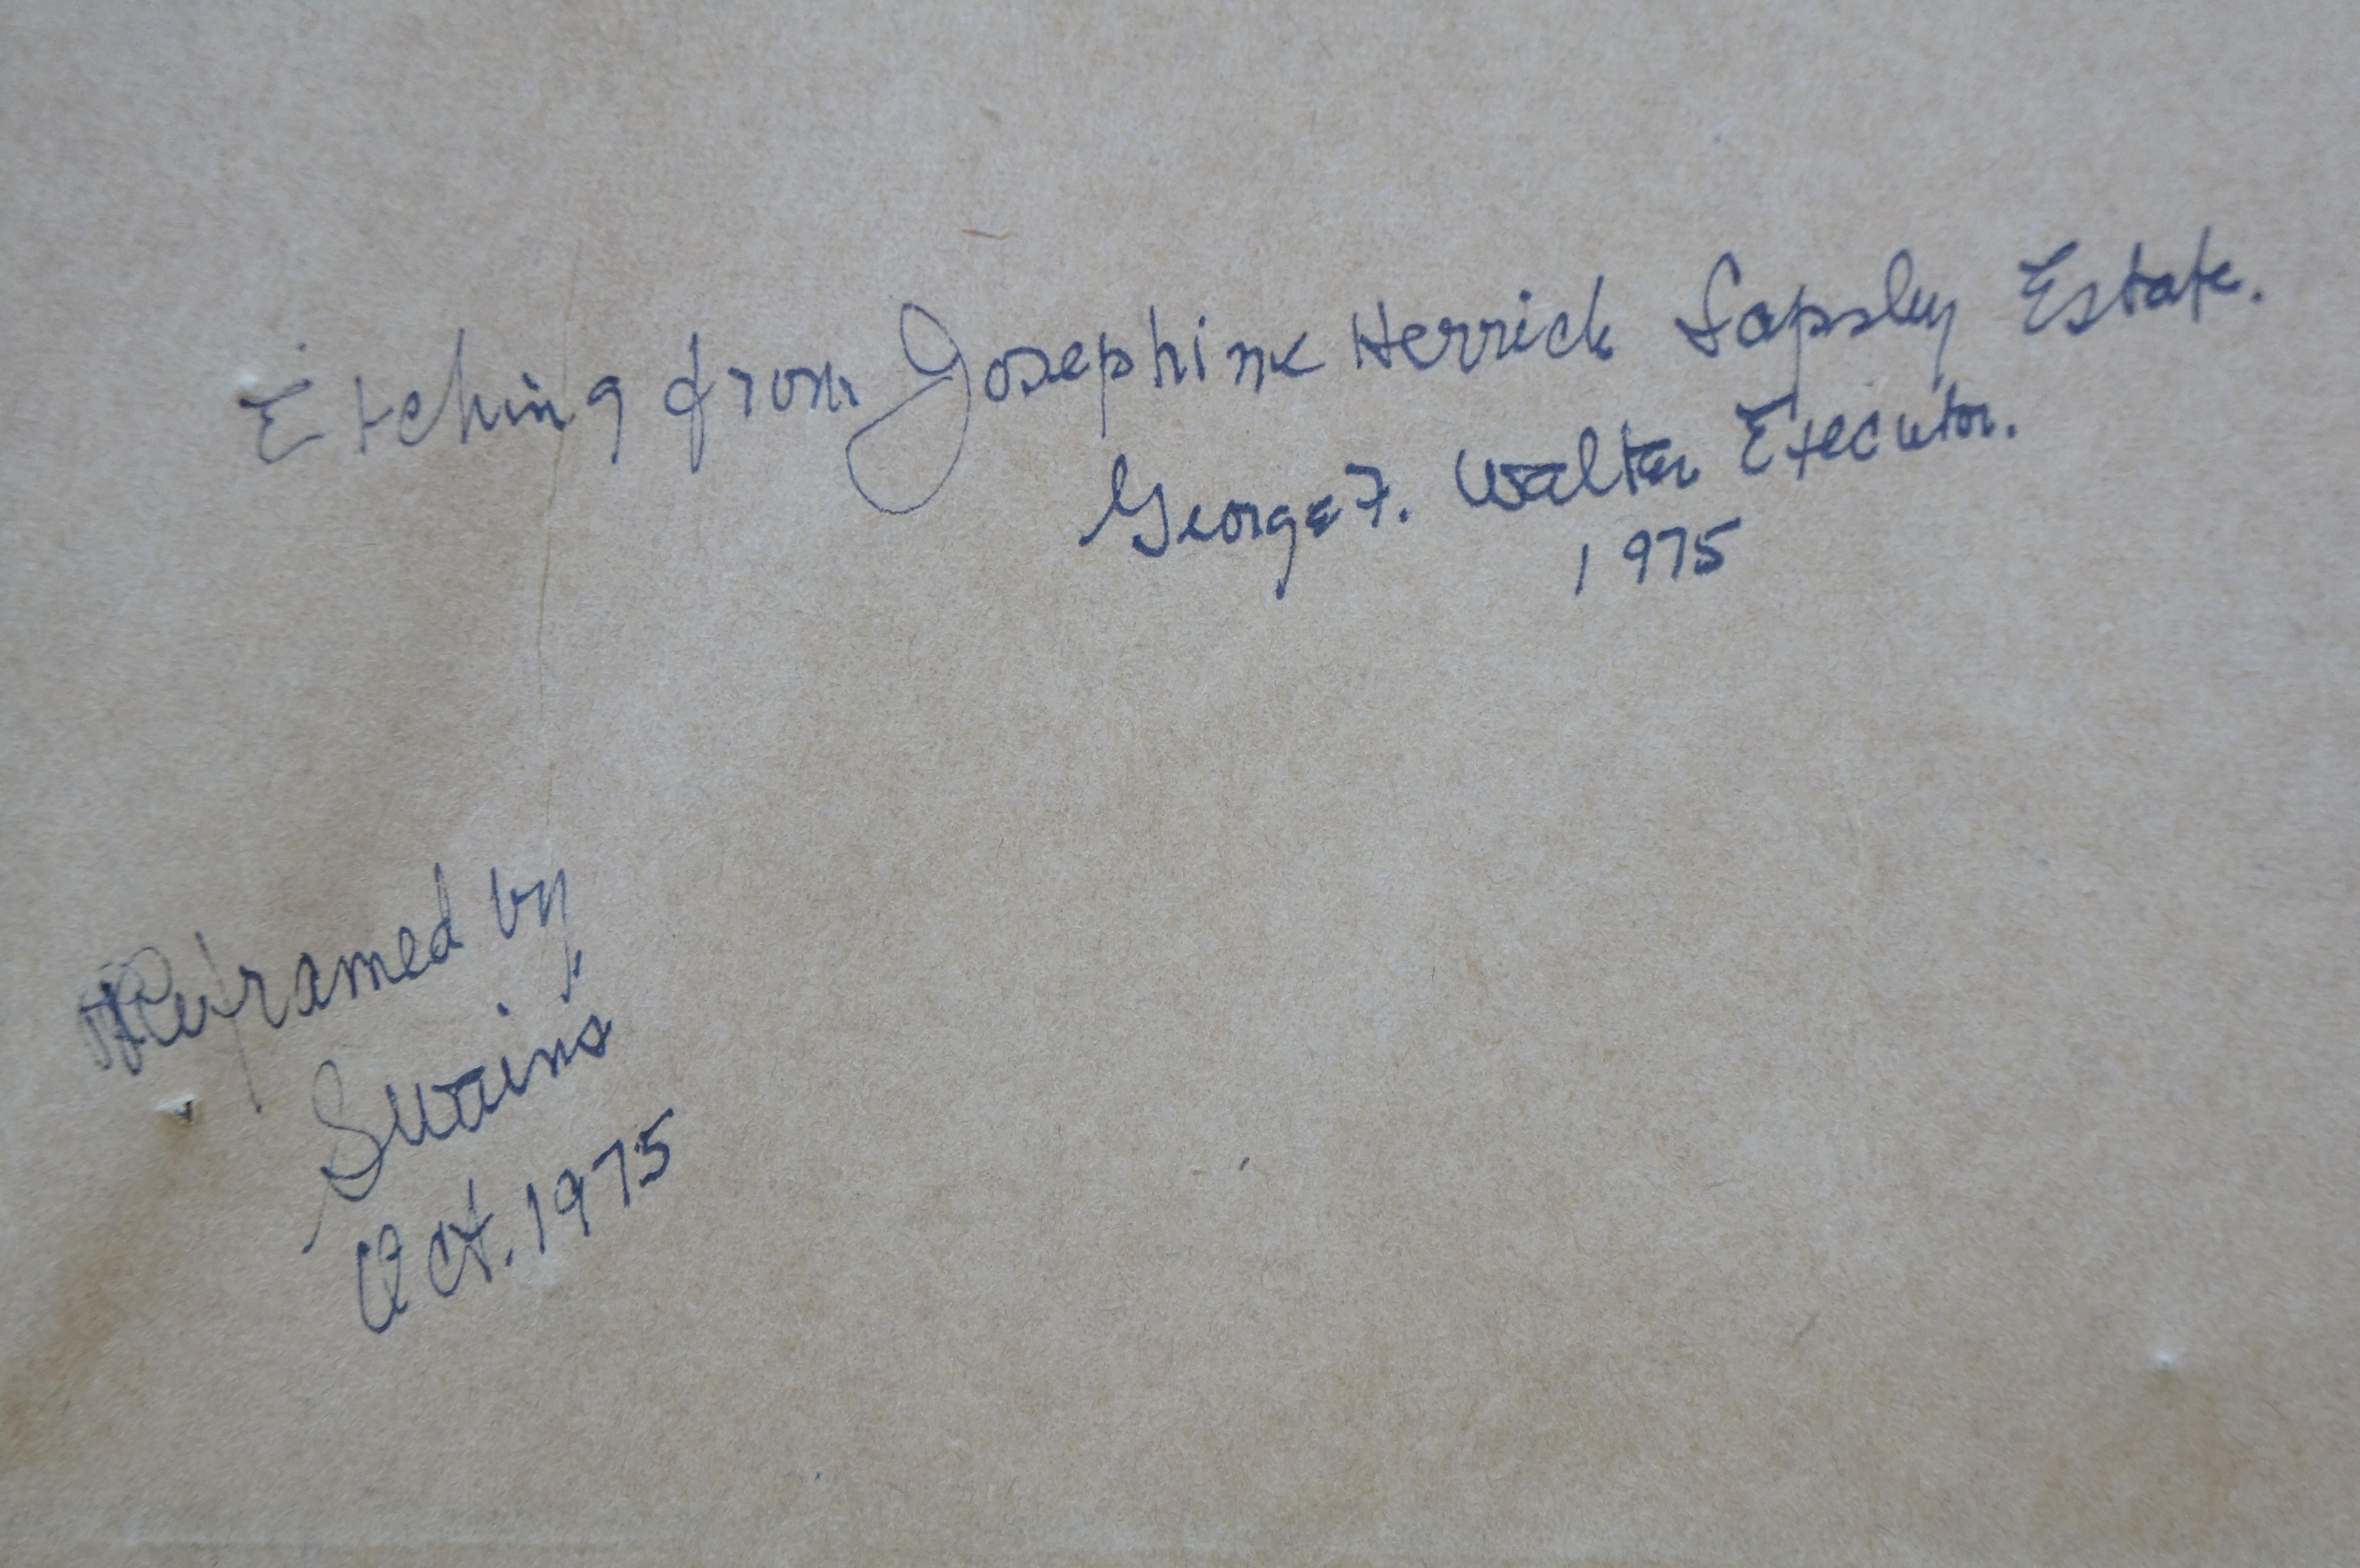 Etching from Josephine Herrick Lapsley Estate.
George F. Walter Executor.
1975
Reframed by
Swain's
Oct. 1975